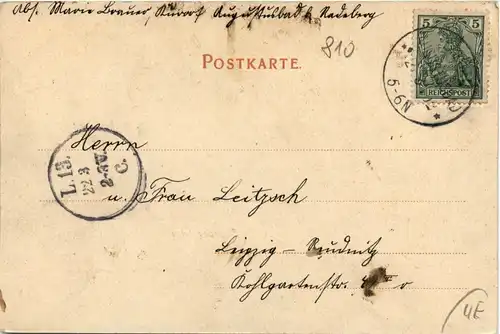 Abs. Marie Brauer, Kurort Augustusbad b. Radeberg
810
POSTKARTE.
5 5
REICHSPOST
5-6N
L. 13.
22 3
8-9V.
C.
Herrn
u. Frau Leitzsch
Leipzig-Reudnitz
Kohlgartenstr.
4E